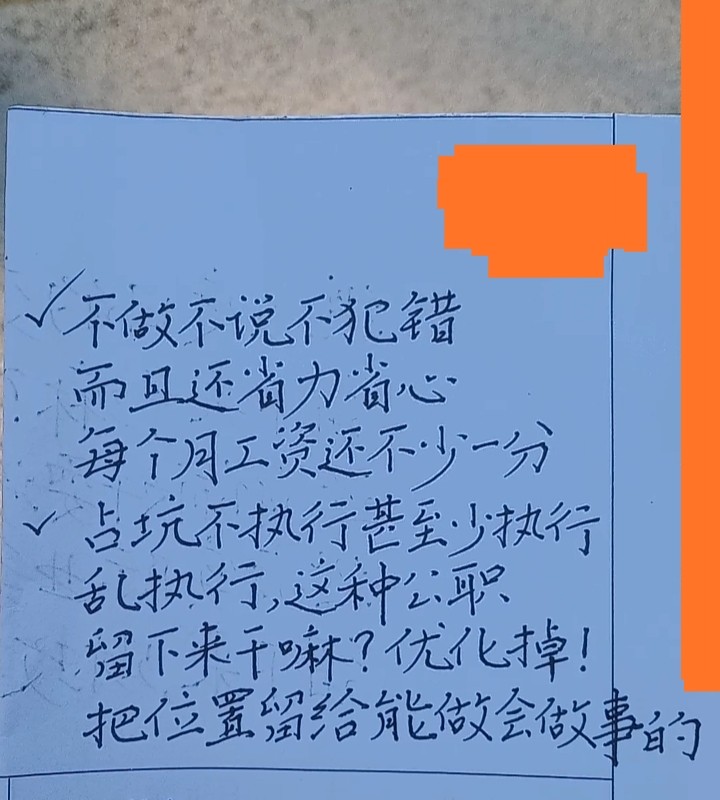 ✓不做不说不犯错
而且还省力省心
每个月工资还不少一分
✓占坑不执行甚至少执行
乱执行,这种公职
留下来干嘛?优化掉!
把位置留给能做会做事的